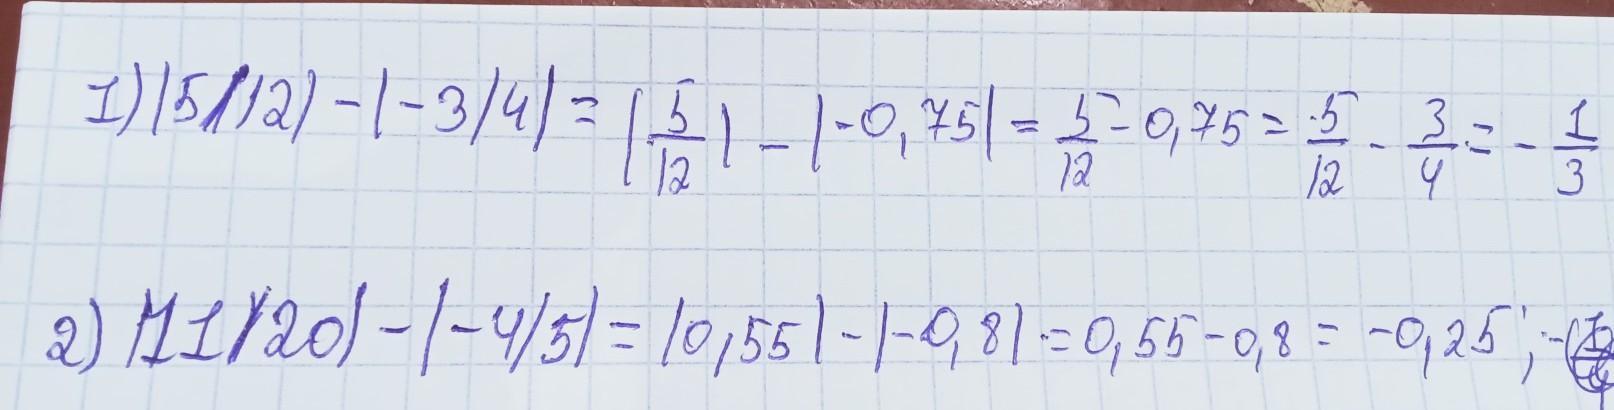 1) |5/12| - |-3/4| = |5/12| - |-0,75| = 5/12 - 0,75 = 5/12 - 3/4 = - 1/3
2) |11/20| - |-4/5| = |0,55| - |-0,8| = 0,55 - 0,8 = -0,25 ;